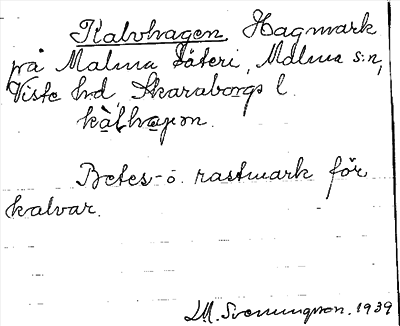 Kalvhagen, Hagmark
på Malma säteri, Malma s:n,
Viste hd, Skaraborgs l.
kàlhagen.
Betes- o. rastmark för
kalvar.
M. Svenungson. 1939